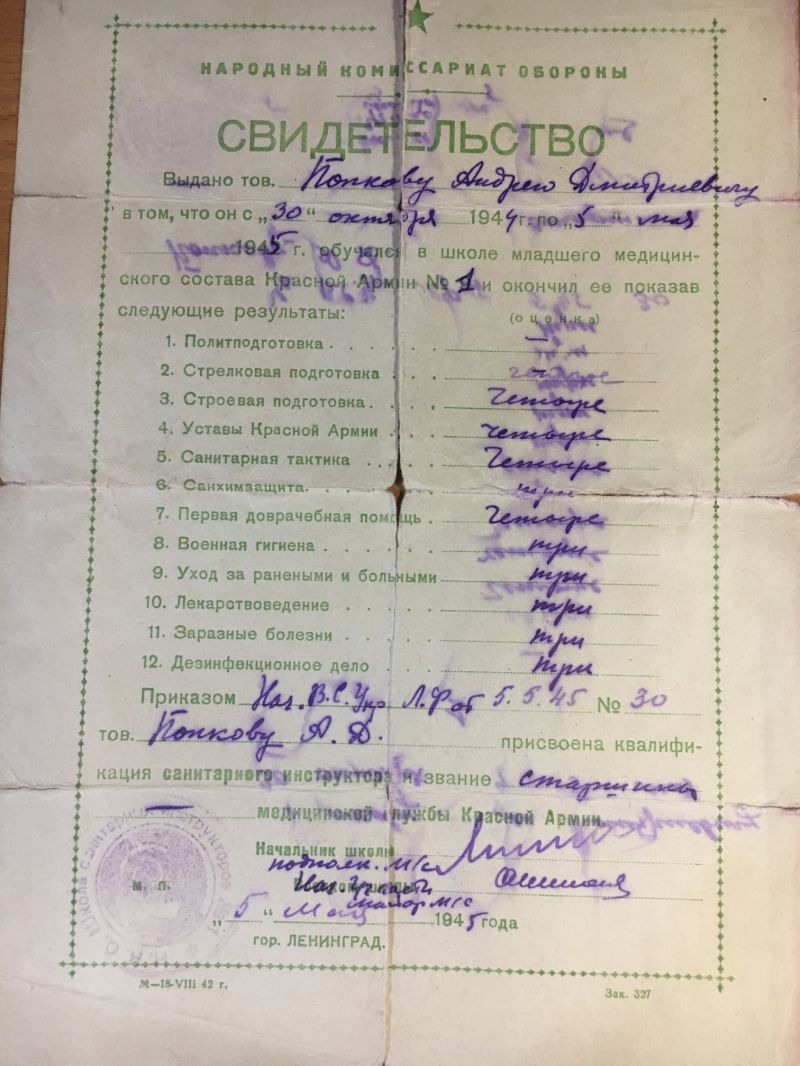 НАРОДНЫЙ КОМИССАРИАТ ОБОРОНЫ
СВИДЕТЕЛЬСТВО
Выдано тов. Попкову Андрею Дмитриевичу
в том, что он с „30“ октября 1944 г. по „5“ мая
1945 г. обучался в школе младшего медицин-
ского состава Красной Армии № 1 и окончил ее показав
следующие результаты: (оценка)
1. Политподготовка . . . .
2. Стрелковая подготовка . . . четыре
3. Строевая подготовка . . . четыре
4. Уставы Красной Армии . . . четыре
5. Санитарная тактика . . . . четыре
6. Санхимзащита . . . . . три
7. Первая доврачебная помощь . четыре
8. Военная гигиена . . . . . три
9. Уход за ранеными и больными три
10. Лекарствоведение . . . . три
11. Заразные болезни . . . . три
12. Дезинфекционное дело . . . три
Приказом Нач. В.С.Упр Л.Ф от 5.5.45 № 30
тов. Попкову А. Д. присвоена квалифи-
кация санитарного инструктора и звание старшины
медицинской службы Красной Армии
Начальник школы
подполк. м/с
Нач. Уч. части
м. п. майор м/с
„5“ Мая 1945 года
гор. ЛЕНИНГРАД.
Школа санитарных инструкторов
М—18-VIII 42 г. Зак. 327